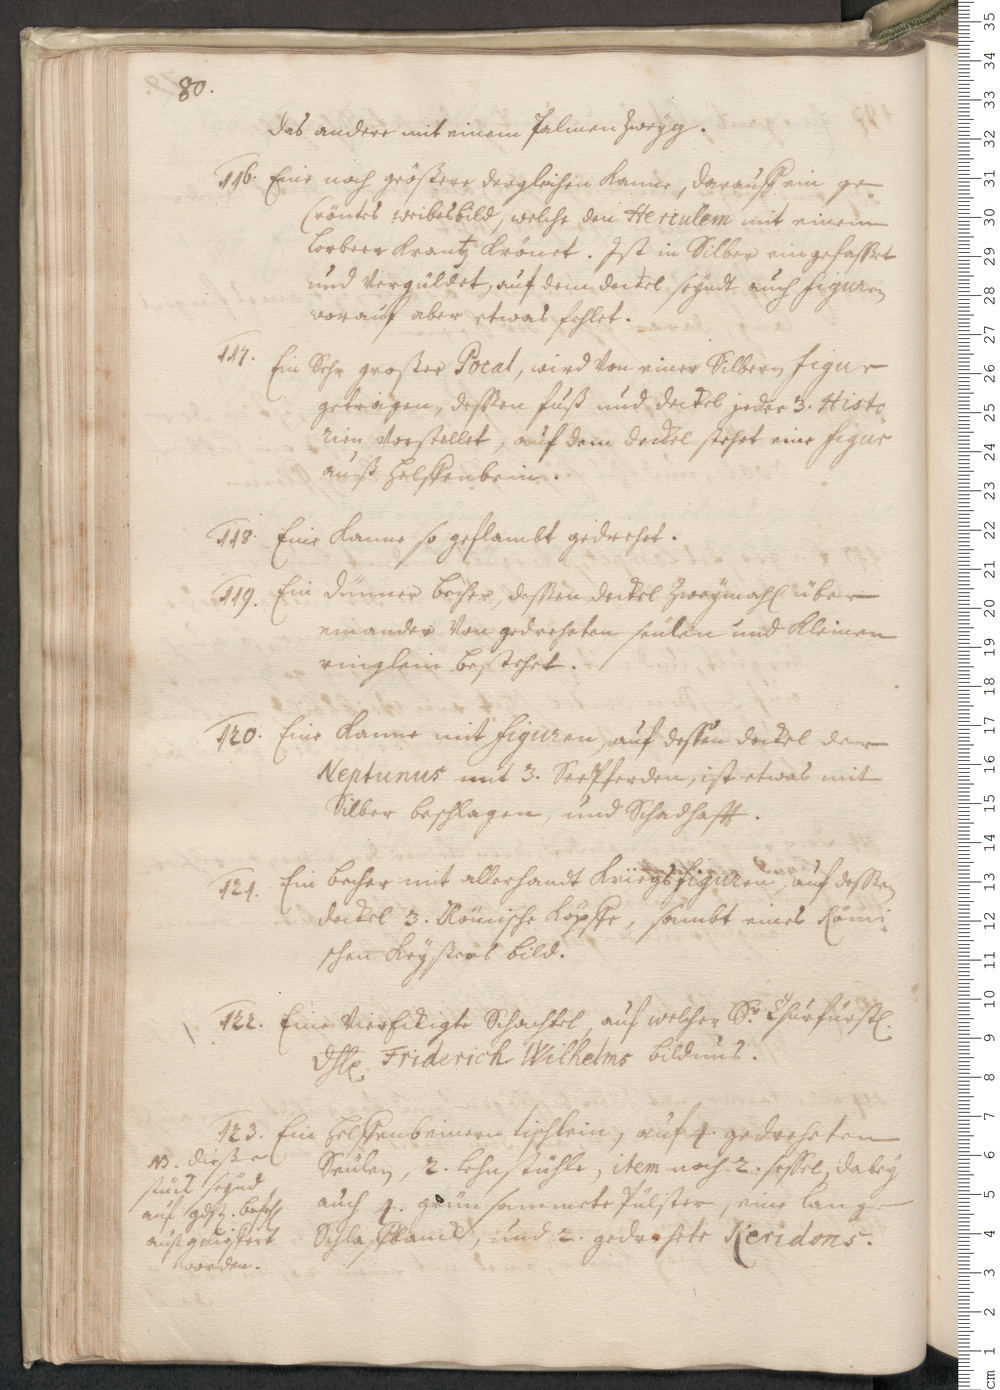 80.
Das andere mit einem Palmen Zweyg.
116. Eine noch größere dergleichen Kanne, darauff ein ge-
cröntes weibesbild, welche den Herculem mit einem
Lorbeer Krantz Krönet. Ist in Silber eingefasset
und Vergüldet, auf dem deckel seyndt auch figuren
worauf aber etwas fehlet.
117. Ein Sehr großer Pocal, wird Von einer Silbern figur
getragen, dessen fuß und deckel jeder 3. Histo-
rien Vorstellet, auf dem deckel stehet eine figur
auß Helffenbein.
118. Eine Kanne so geflambt gedrehet.
119. Ein dünner becher, dessen deckel Zweymahl über
einander Von gedreheten seulen und Kleinen
ringlein bestehet.
120. Eine Kanne mit figuren, auf dessen deckel der
Neptunus mit 3. SeePferden, ist etwas mit
Silber beschlagen, und Schadhafft.
121. Ein becher mit allerhandt Kriegsfiguren, auf dessen
deckel 3. Römische Köpffe, sambt eines Römi-
schen Keysers bild.
122. Eine Viereckigte Schachtel, auf welcher Sr. Churfürstl.
Dhl. Friderich Wilhelms bildnus.
123. Ein Helffenbeinern tischlein, auf 4. gedreheten
Seulen, 2. Lehnstühle, item noch 2. sessel, dabey
auch 4. grün sammete Pülster, eine lange
Schlaffbanck, und 2. gedrehete Keridons.
NB. diese
stück seynd
auf gdst. befehl
außgeliefert
worden.
35
34
33
32
31
30
29
28
27
26
25
24
23
22
21
20
19
18
17
16
15
14
13
12
11
10
9
8
7
6
5
4
3
2
1
cm